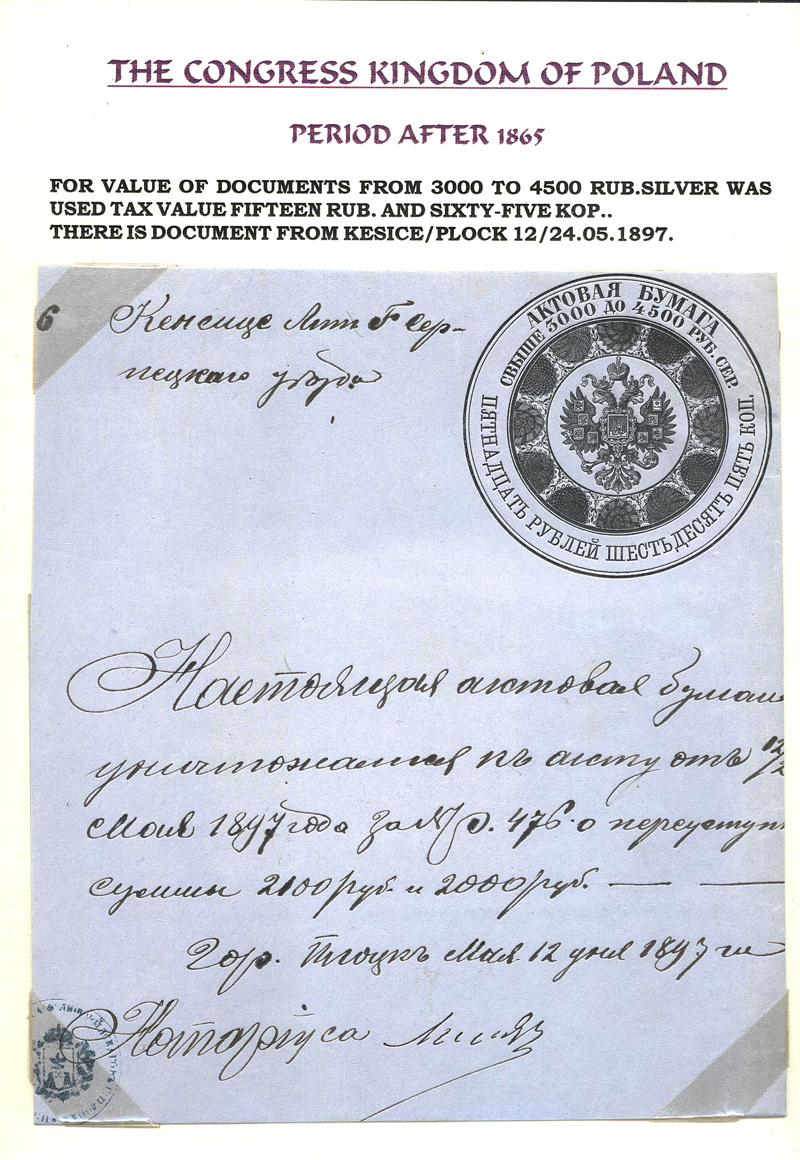 THE CONGRESS KINGDOM OF POLAND
PERIOD AFTER 1865
FOR VALUE OF DOCUMENTS FROM 3000 TO 4500 RUB.SILVER WAS
USED TAX VALUE FIFTEEN RUB. AND SIXTY-FIVE KOP..
THERE IS DOCUMENT FROM KESICE/PLOCK 12/24.05.1897.
6
Кенсице Лит F Сер-
пецкаго уѣзда
АКТОВАЯ БУМАГА
СВЫШЕ 3000 ДО 4500 РУБ. СЕР.
ПЯТНАДЦАТЬ РУБЛЕЙ ШЕСТЬДЕСЯТЪ ПЯТЬ КОП.
Настоящая актовая бумаг
уничтожается къ акту отъ 12/2
Мая 1897 года за № 476 о переуступк
суммы 2100 руб и 2000 руб. — —
Гор. Плоцкъ Мая 12 дня 1897 го
Нотаріуса